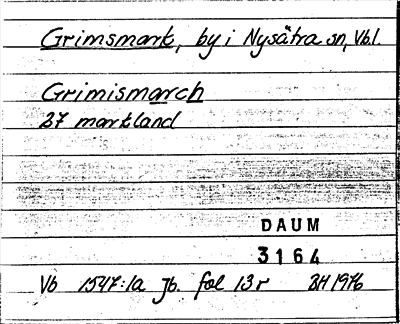 Grimsmark, by i Nysätra sn, Vbl.
Grimismarch
27 markland
DAUM
3164
Vb 1547:1a Jb. fol 13 r BH 1976